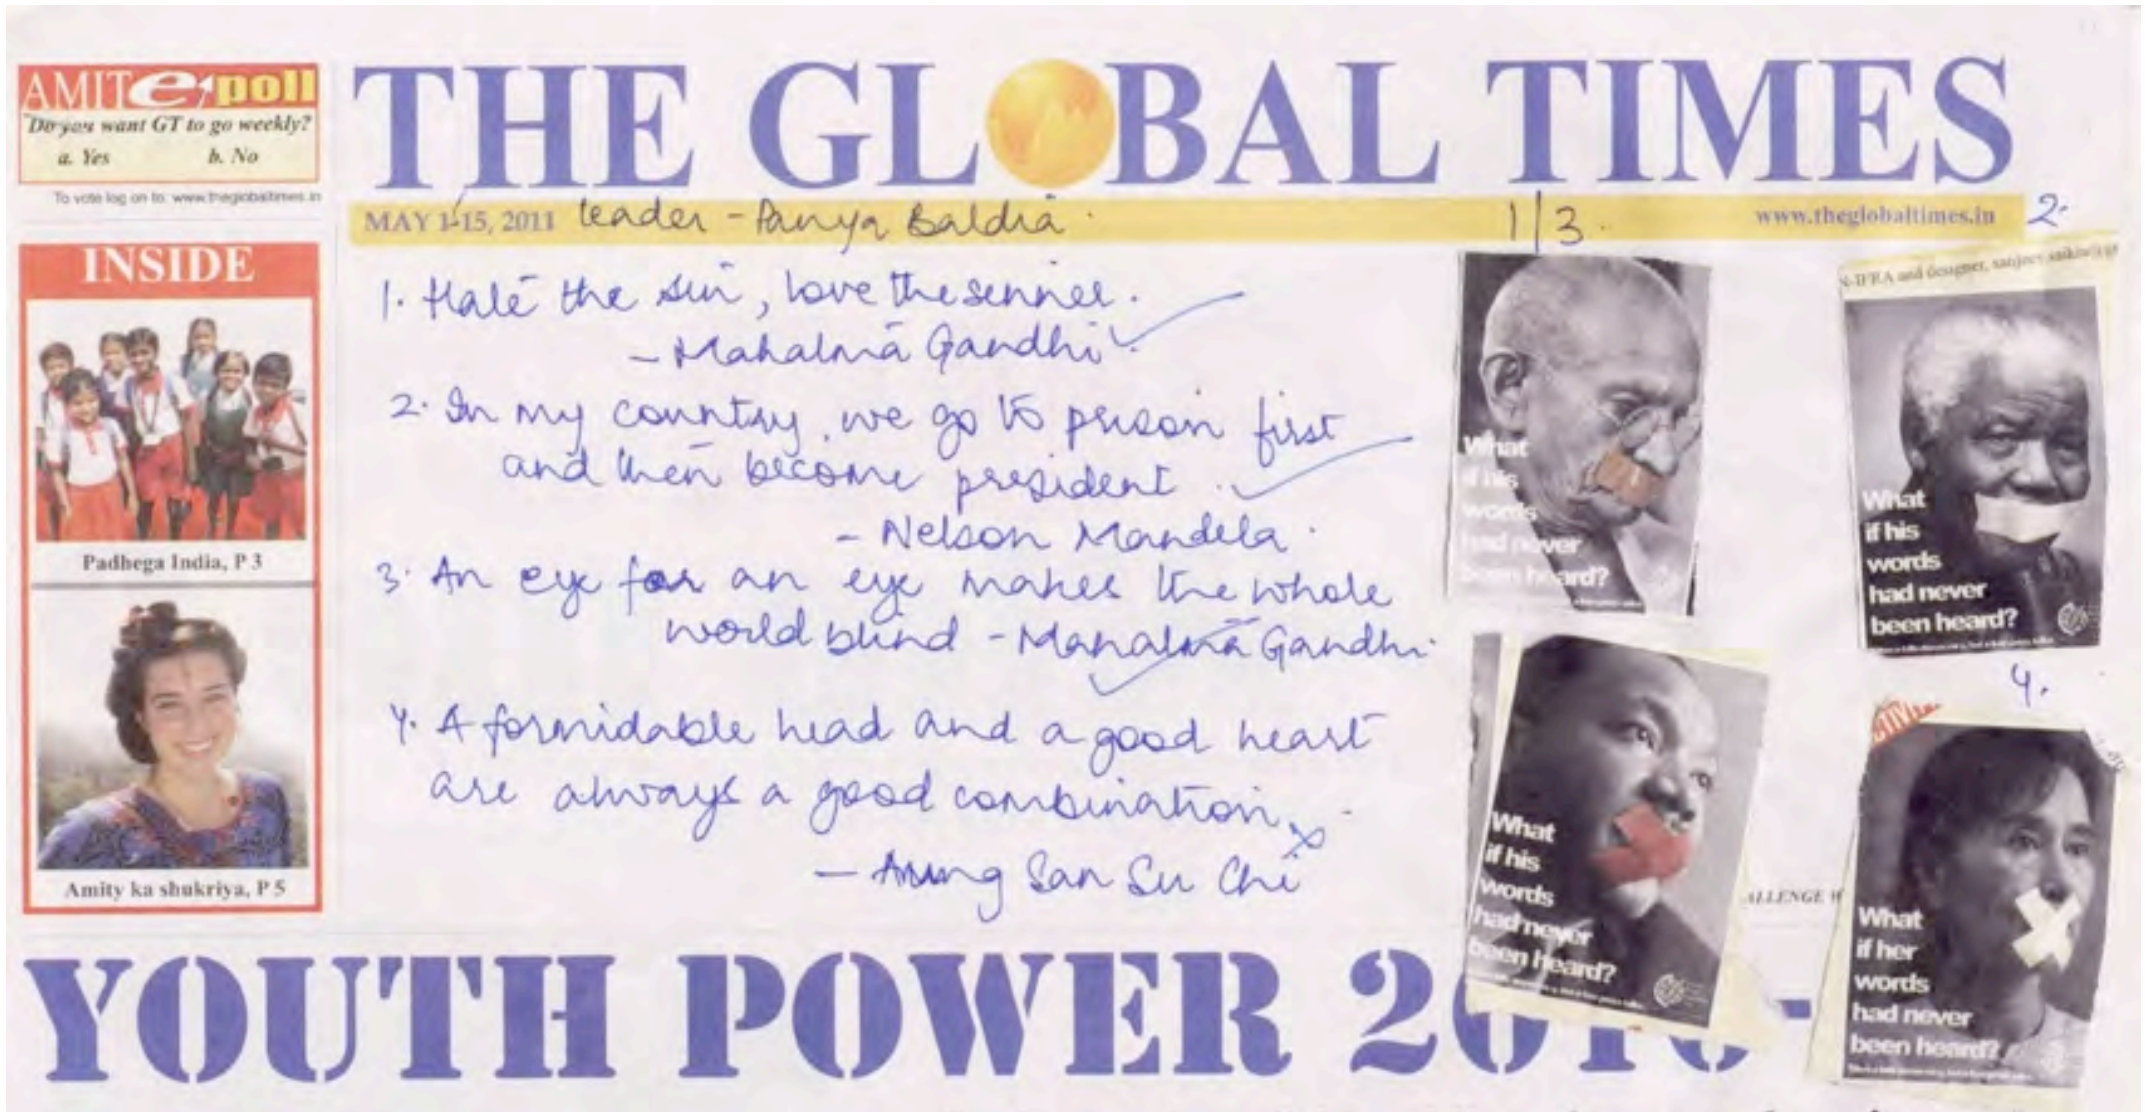 AMIT e poll
Do you want GT to go weekly?
a. Yes b. No
To vote log on to: www.theglobaltimes.in
THE GLOBAL TIMES
MAY 1-15, 2011 leader - Panya Baldia
1/3.
www.theglobaltimes.in 2.
INSIDE
Padhega India, P 3
Amity ka shukriya, P 5
1. Hate the sin, love the sinner.
- Mahatma Gandhi
2. In my country, we go to prison first
and then become president.
- Nelson Mandela.
3. An eye for an eye makes the whole
world blind - Mahatma Gandhi.
4. A formidable head and a good heart
are always a good combination.
- Aung San Su Chi
What
if his
words
had never
been heard?
N-IFRA and designer, sanjeev.saikia@gr
What
if his
words
had never
been heard?
What
if his
words
had never
been heard?
4.
What
if her
words
had never
been heard?
ALLENGE
YOUTH POWER 2010-